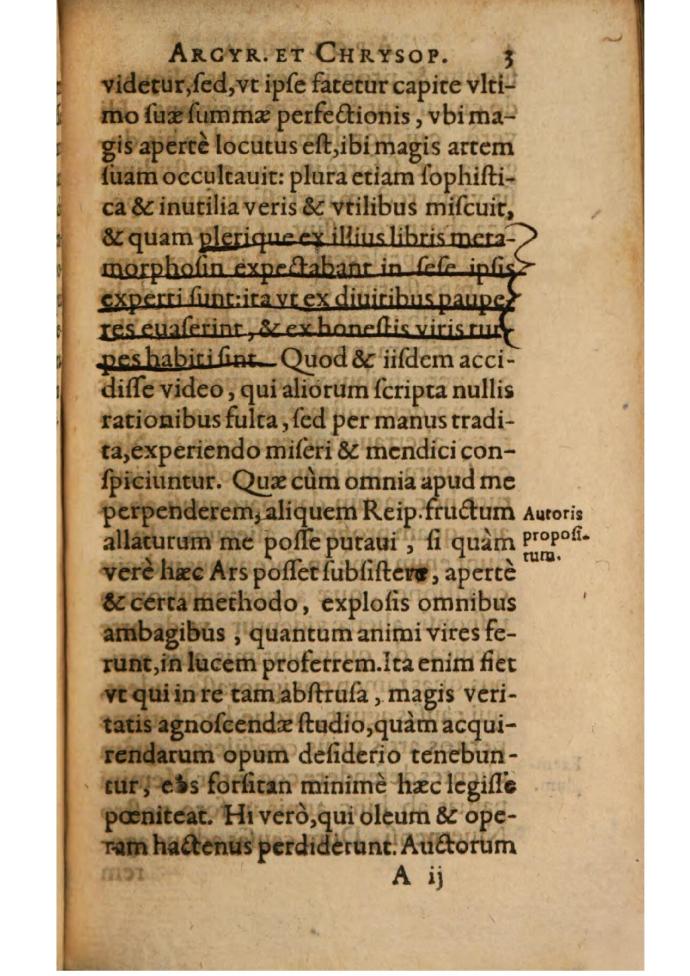 ARGYR. ET CHRYSOP. 3
videtur, ſed, vt ipſe fatetur capite vlti-
mo ſuæ ſummæ perfectionis, vbi ma-
gis apertè locutus eſt, ibi magis artem
ſuam occultauit: plura etiam ſophiſti-
ca & inutilia veris & vtilibus miſcuit,
& quam plerique ex illius libris meta-
morphoſin expectabant in ſeſe ipſis
experti ſunt: ita vt ex diuitibus paupe
res euaſerint, & ex honeſtis viris tur
pes habiti ſint. Quod & iiſdem acci-
diſſe video, qui aliorum ſcripta nullis
rationibus fulta, ſed per manus tradi-
ta, experiendo miſeri & mendici con-
ſpiciuntur. Quæ cùm omnia apud me
perpenderem, aliquem Reip. fructum
allaturum me poſſe putaui, ſi quàm
verè hæc Ars poſſet ſubſiſtere, apertè
& certa methodo, exploſis omnibus
ambagibus, quantum animi vires fe-
runt, in lucem proferrem. Ita enim fiet
vt qui in re tam abſtruſa, magis veri-
tatis agnoſcendæ ſtudio, quàm acqui-
rendarum opum deſiderio tenebun-
tur, eos forſitan minimè hæc legiſſe
pœniteat. Hi verò, qui oleum & ope-
ram hactenus perdiderunt. Auctorum
A ij
Autoris
propoſi-
tum.